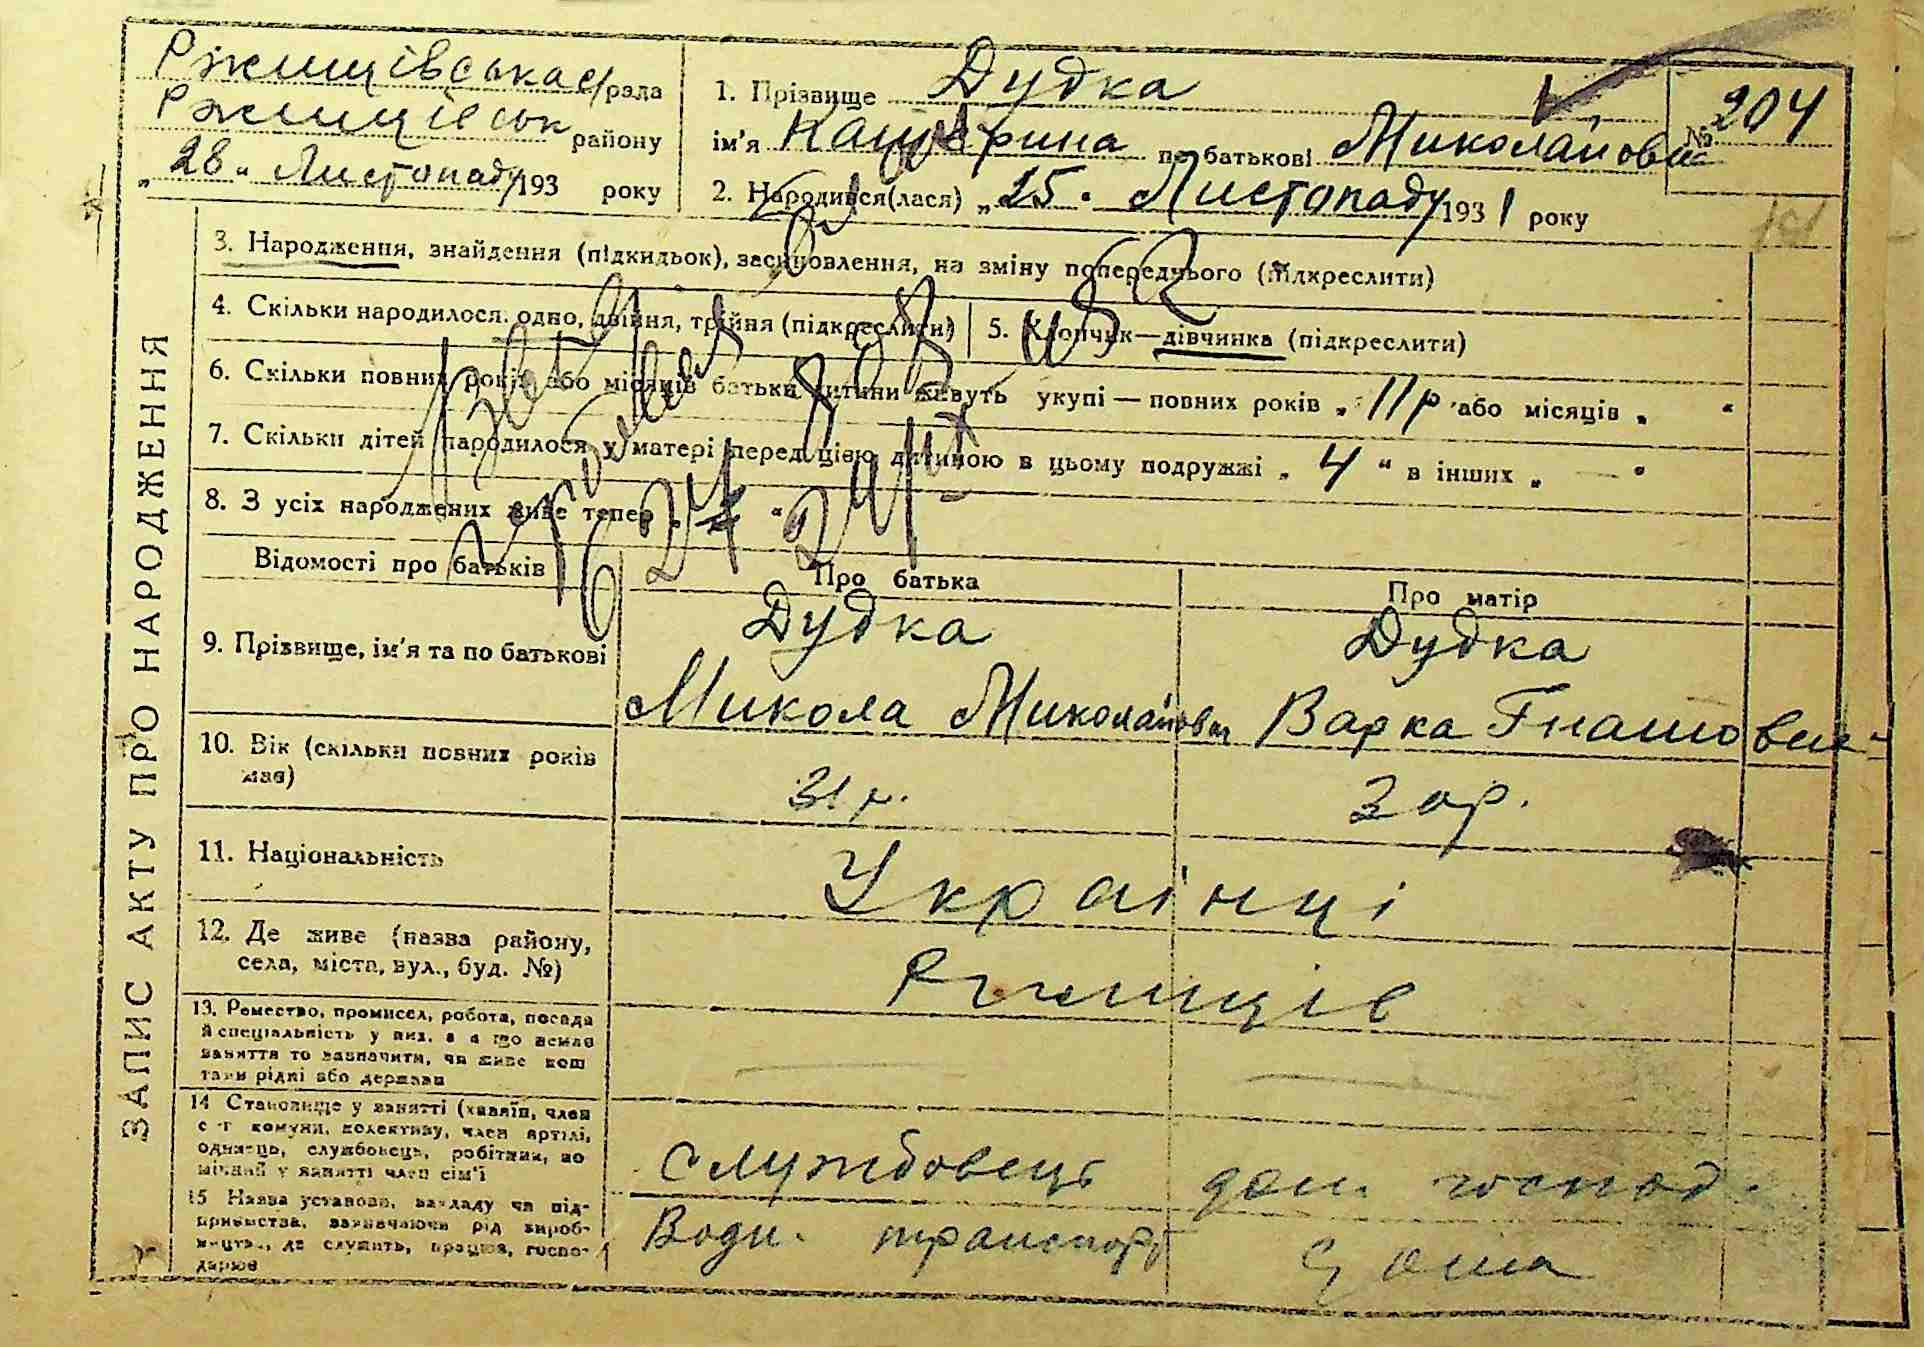 Ржищівська с/рада
Ржищівськ району
"28" Листопаду 193 року
1. Прізвище Дудка
ім'я Катерина по батькові Миколаївна
№ 204
2. Народився(лася) "25" Листопаду 1931 року
ЗАПИС АКТУ ПРО НАРОДЖЕННЯ
3. Народження, знайдення (підкидьок), засиновлення, на зміну попереднього (підкреслити)
4. Скільки народилося: одно, двійня, трійня (підкреслити)
5. Хлопчик—дівчинка (підкреслити)
6. Скільки повних років або місяців батьки дитини живуть укупі — повних років „ 11 р або місяців „ “
7. Скільки дітей народилося у матері перед цією дитиною в цьому подружжі „ 4 “ в інших „ — “
8. З усіх народжених живе тепер „ “
Відомості про батьків
Про батька
Про матір
9. Прізвище, ім'я та по батькові
Дудка
Микола Миколайович
Дудка
Варка Гнатовна
10. Вік (скільки повних років
має)
31 р.
30 р.
11. Національність
Українці
12. Де живе (назва району,
села, міста, вул., буд. №)
Ржищів
13. Ремество, промисел, робота, посада
й спеціальність у них, а якщо немає
заняття то зазначити, чи живе кош
тами рідні або держави
— —
14 Становище у занятті (хазяїн, член
с-г комуни, колективу, член артілі,
одинець, службовець, робітник, по
мічний у занятті член сім'ї
Службовець
дом. господ.
15 Назва установи, закладу чи під-
приємства, зазначаючи рід вироб-
ництв., де служить, працює, госпо-
дарює
Водн. транспорт